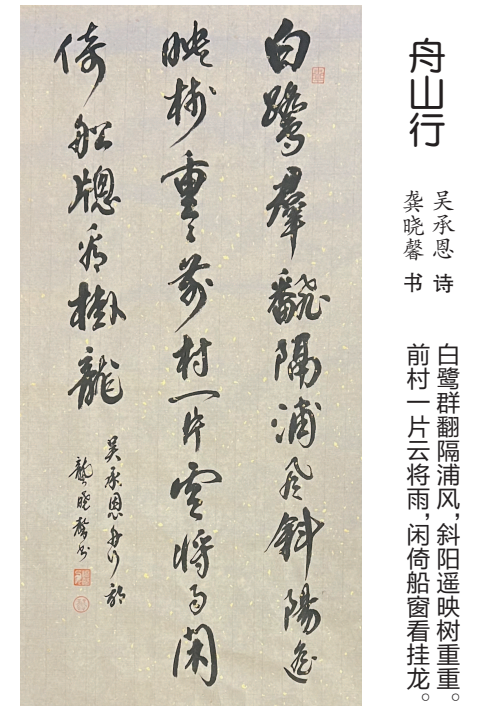 舟山行
吴承恩 诗
龚晓馨 书
白鹭群翻隔浦风，斜阳遥映树重重。
前村一片云将雨，闲倚船窗看挂龙。
白鷺羣飜隔浦风斜陽遥
映樹重〻前村一片雲將雨閑
倚船牕看掛龍
吴承恩舟行
龔曉馨书